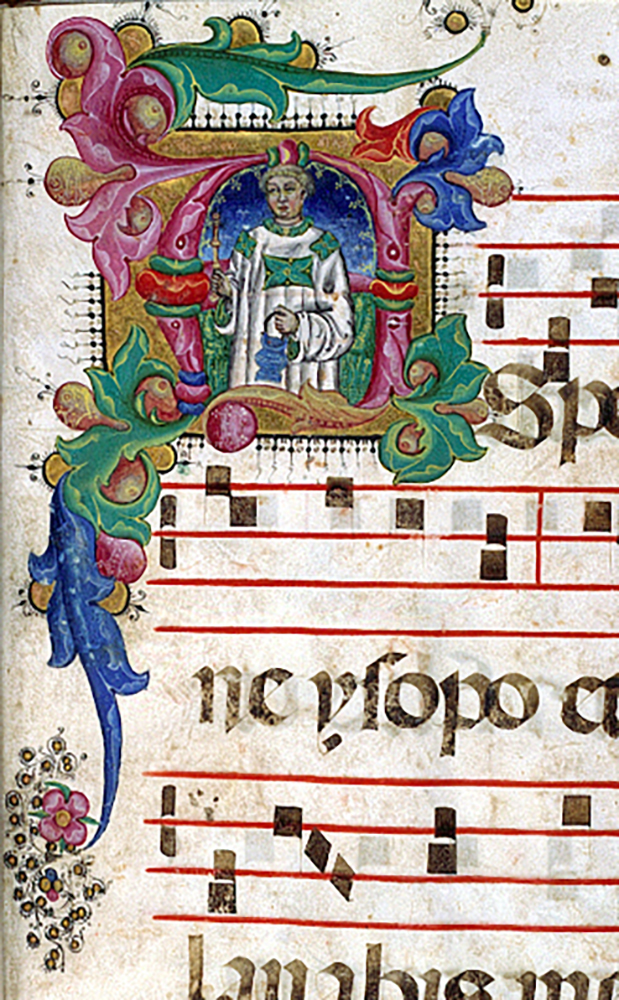 ASpe
ne yſopo et
lauabis me